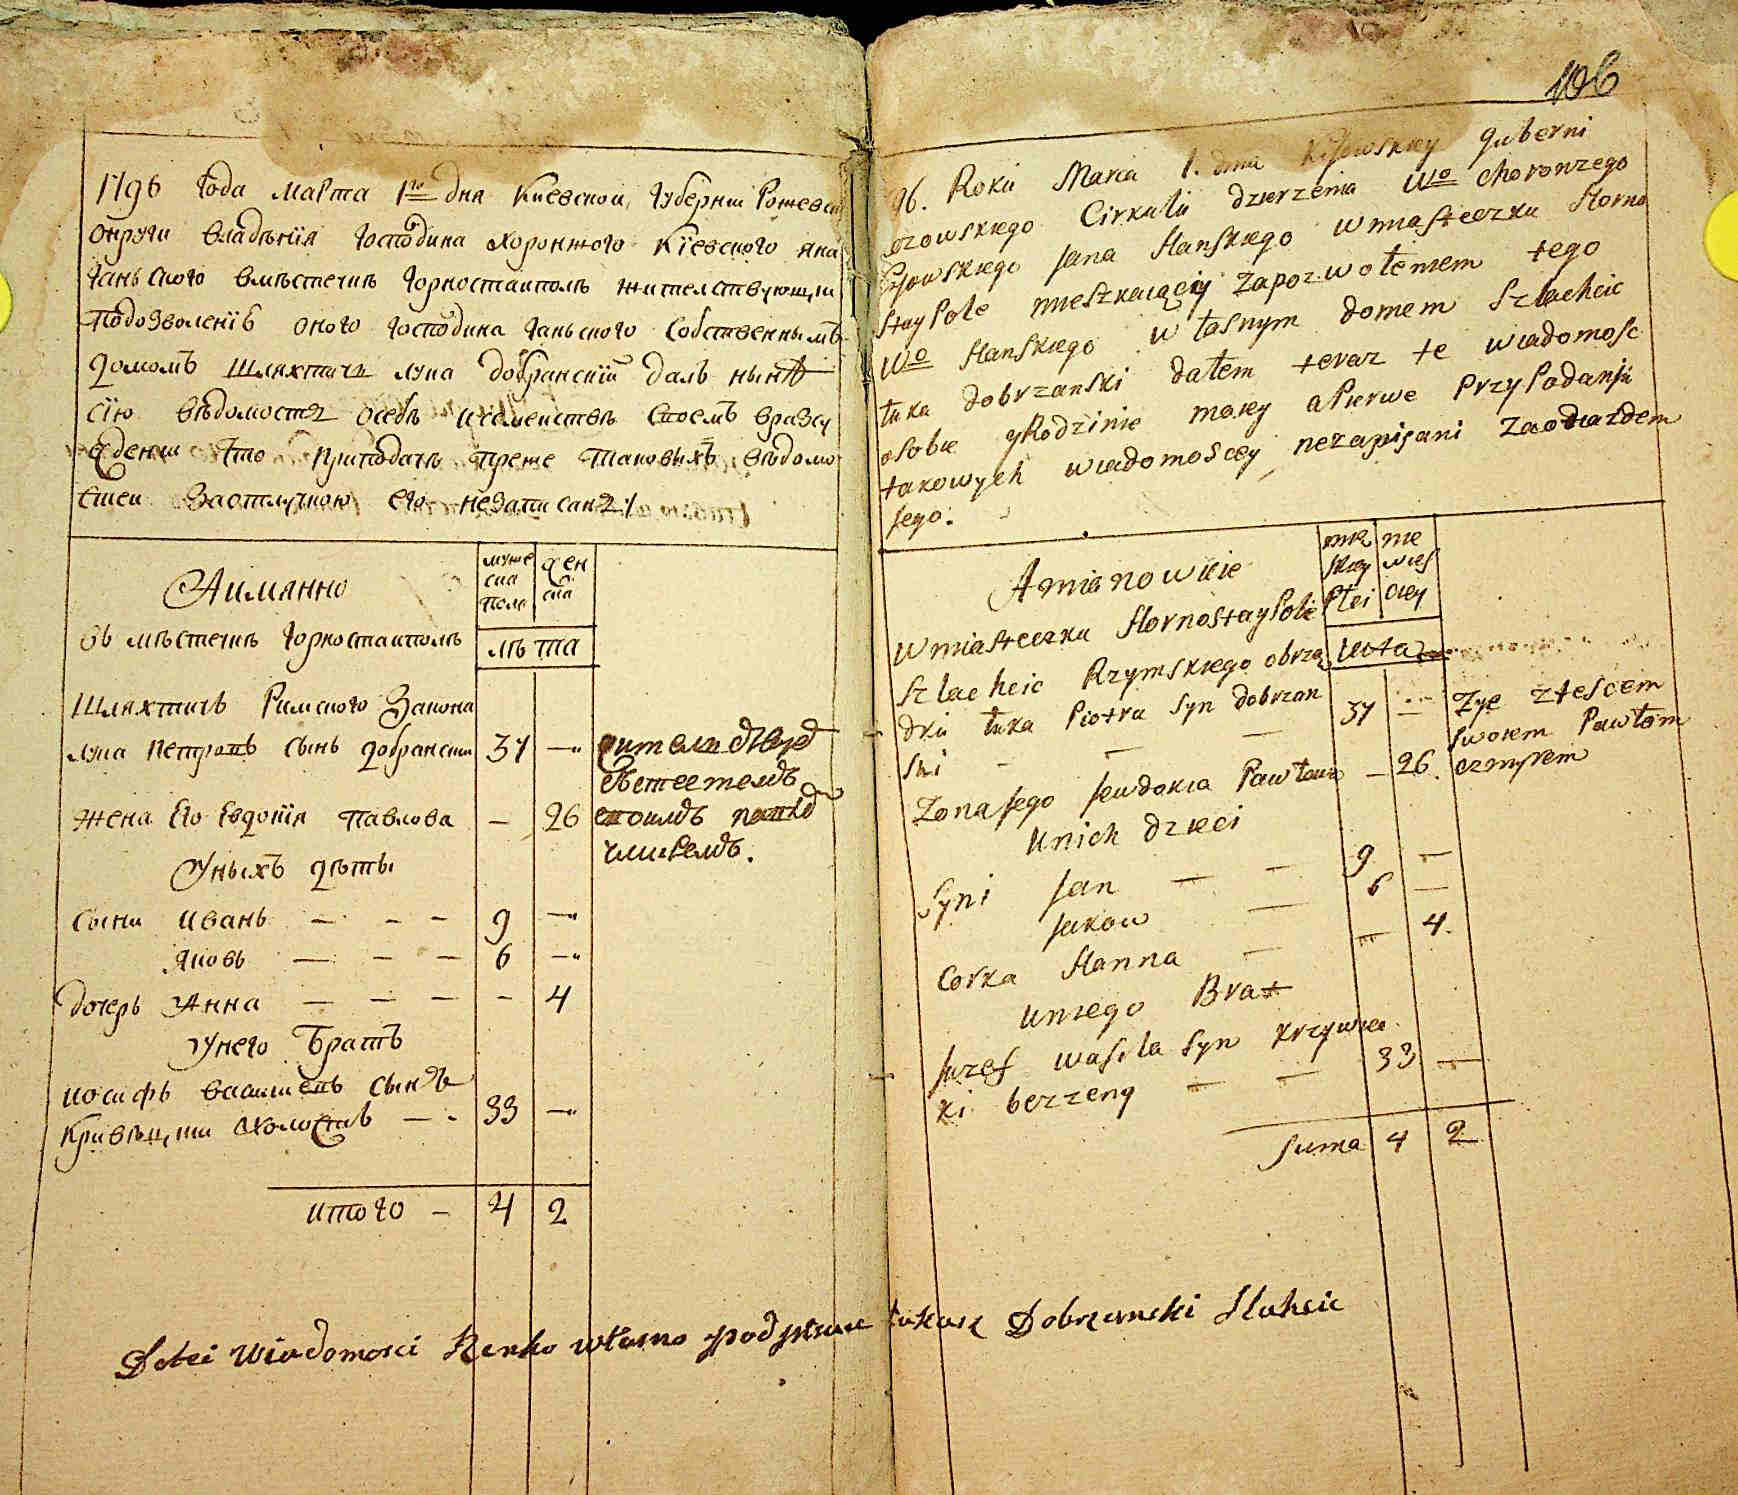 1796 года марта 1го дня Киевской губернии Рожевск
округи владѣнія господина хоронжого Кіевского яна
ганьского вмѣстечкѣ горностаиполѣ жителствующии
подозволеніѣ оного господина ганьского собственнымъ
домомъ шляхтичъ лука добрански далъ нынѣ
сію вѣдомость осебѣ исемеистве своемъ вразсу
ждении что приподачѣ преже таковыхъ вѣдомо
стеи заотлучкою его незаписанъ
Аимянно
муже ска полу
жен ска
лѣта
въ мѣстечкѣ горностаиполѣ
шляхтичъ Римского Закона
лука петровъ сынъ добрански 37 —
жена Его Евдокія павлова — 26
Уныхъ дѣти
сыни иванъ — - - 9 —
яковъ — - — 6 —
дочерь Анна — — — - 4
унего братъ
иосифъ василиевъ сынъ
кривѣцкии холостъ — - 33 —
итого — 4 2
106
96. Roku Marca 1. dnia Kijowskiey guberni
ozowskiego Cirkułu dzierzenia Wo choronzego
Kijowskiego Jana Hanskiego w miasteczku Horno
stayPole mieszkaiąciy zapozwoleniem tego
Wo Hanskiego własnym domem Szlachcic
łuka dobrzanski dałem teraz te wiadomosc
osobie yRodzinie moiey aPierwe PrzyPodaniu
takowych wiadomoscey niezapisani zaodiazdem
Jego.
Amianowicie
mez skiey Płci
nie wies ciey
leta
w miasteczku HornostayPole
Szlachcic Rzymskiego obrzą
dku łuka Piotra Syn dobrzan
ski - — — 37 —
Zyie ztescem
swoiem Pawłem
czmyrem
Zona Jego Jewdokia Pawłowa — 26.
Unich dzieci
Syni Jan — - 9 —
Jakow — 6 —
Corka Hanna — — 4.
Uniego Brat
Juzef wasila Syn krzywiec
ki bezzeny — — 33 —
Suma 4 2
Dotei Wiadomosci Renko własno podpisuie łukasz Dobrzanski Slahcic